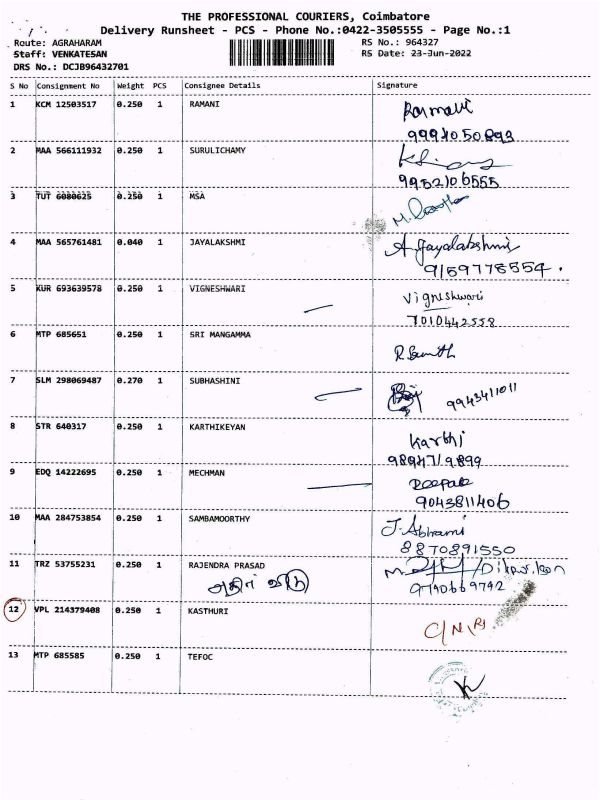 THE PROFESSIONAL COURIERS, Coimbatore
Delivery Runsheet - PCS - Phone No.:0422-3505555 - Page No.:1
Route: AGRAHARAM RS No.: 964327
Staff: VENKATESAN RS Date: 23-Jun-2022
DRS No.: DCJB96432701
S No Consignment No Weight PCS Consignee Details Signature
1 KCM 12503517 0.250 1 RAMANI Ramani
2 MAA 566111932 0.250 1 SURULICHAMY
9952106555
3 TUT 6080625 0.250 1 MSA
4 MAA 565761481 0.040 1 JAYALAKSHMI A Jayalakshmi
9159778554.
5 KUR 693639578 0.250 1 VIGNESHWARI Vigneshwari
7010442558
6 MTP 685651 0.250 1 SRI MANGAMMA
7 SLM 298069487 0.270 1 SUBHASHINI 9943411011
8 STR 640317 0.250 1 KARTHIKEYAN Karthi
9894719899
9 EDQ 14222695 0.250 1 MECHMAN Deepak
9043811406
10 MAA 284753854 0.250 1 SAMBAMOORTHY J. Abirami
8870891550
11 TRZ 53755231 0.250 1 RAJENDRA PRASAD
9790669792
12 VPL 214379408 0.250 1 KASTHURI
13 MTP 685585 0.250 1 TEFOC